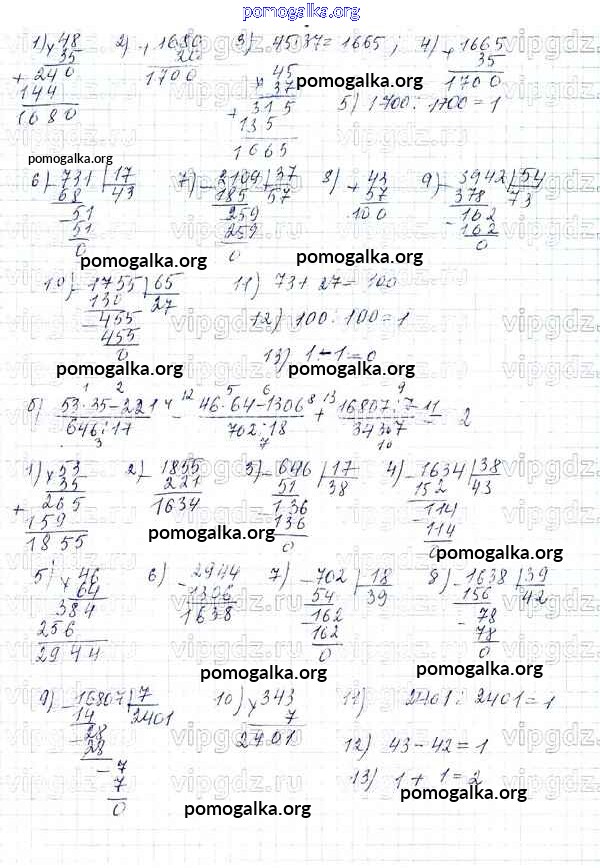 pomogalka.org
1) × 48 2) + 1680 3) 45·37 = 1665; 4) + 1665
35 20 × 45 35
+ 240 1700 37 1700
144 + 315 5) 1700 : 1700 = 1
1680 135
1665
pomogalka.org
pomogalka.org
6) - 731 | 17 7) - 2109 | 37 8) + 43 9) - 3942 | 54
68 43 185 57 57 378 73
- 51 - 259 100 - 162
51 259 162
0 0 0
pomogalka.org pomogalka.org
10) - 1755 | 65 11) 73 + 27 = 100
130 27 12) 100 : 100 = 1
- 455 13) 1 - 1 = 0
455
0
pomogalka.org pomogalka.org
1 2 4 12 5 6 8 13 9 11
б) 53·35-221 - 46·64-1306 + 16807:7 = 2
646:17 702:18 343·7
3 7 10
1) × 53 2) - 1855 3) - 646 | 17 4) - 1634 | 38
35 221 51 38 152 43
+ 265 1634 - 136 - 114
159 136 114
1855 0 0
pomogalka.org pomogalka.org
5) × 46 6) - 2944 7) - 702 | 18 8) - 1638 | 39
64 1306 54 39 156 42
384 1638 - 162 - 78
256 162 78
2944 0 0
pomogalka.org pomogalka.org
9) - 16807 | 7 10) × 343 11) 2401 : 2401 = 1
14 2401 7
- 28 2401 12) 43 - 42 = 1
28
- 7 13) 1 + 1 = 2
7
0
pomogalka.org pomogalka.org
vipgdz.ru